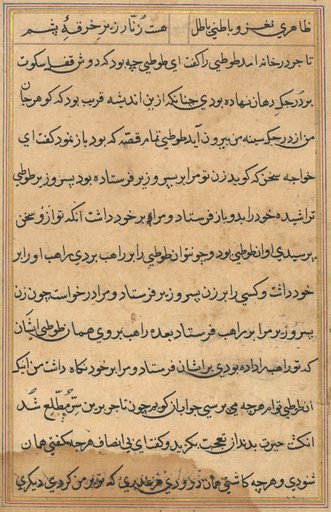 ظاهری نغز و باطنی باطل هست زنار زیر خرقهٔ پشم
تاجر در خانه آمد طوطی را گفت ای طوطی چه بود که دوش قفل سکوت
بر درجک دهان نهاده بودی چنانکه ازین اندیشه قریب بود که گوهر جان
من از درجک سینه من بیرون آید طوطی تمام قصه که بود باز نمود گفت ای
خواجه سخن که گوید زن تو مرا بر پسر وزیر فرستاده بود پسر وزیر طوطی
تراشیده خود را بدو باز فرستاد و مرا بر خود داشت آنکه تو از و سخن
پرسیدی او آن طوطی بود و چون تو آن طوطی را بر راهب بردی راهب او را بر
خود داشت و کسی را بر زن پسر وزیر فرستاد و مرا درخواست چون زن
پسر وزیر مرا بر راهب فرستاد بعده راهب بروی همان طوطی ایشان
که تو راهب را داده بودی بر ایشان فرستاد و مرا بر خود نگاه داشت من آنکه
آن طوطی توام هرچه می پرسی جواب آن گویم چون تاجر برین سر مطلع شد
انگشت حیرت بدندان تعجب بگزید و گفت ای بی انصاف هرچه گفتی همان
شنودی و هرچه کاشتی همان درودی که تو و من کردی دیگری